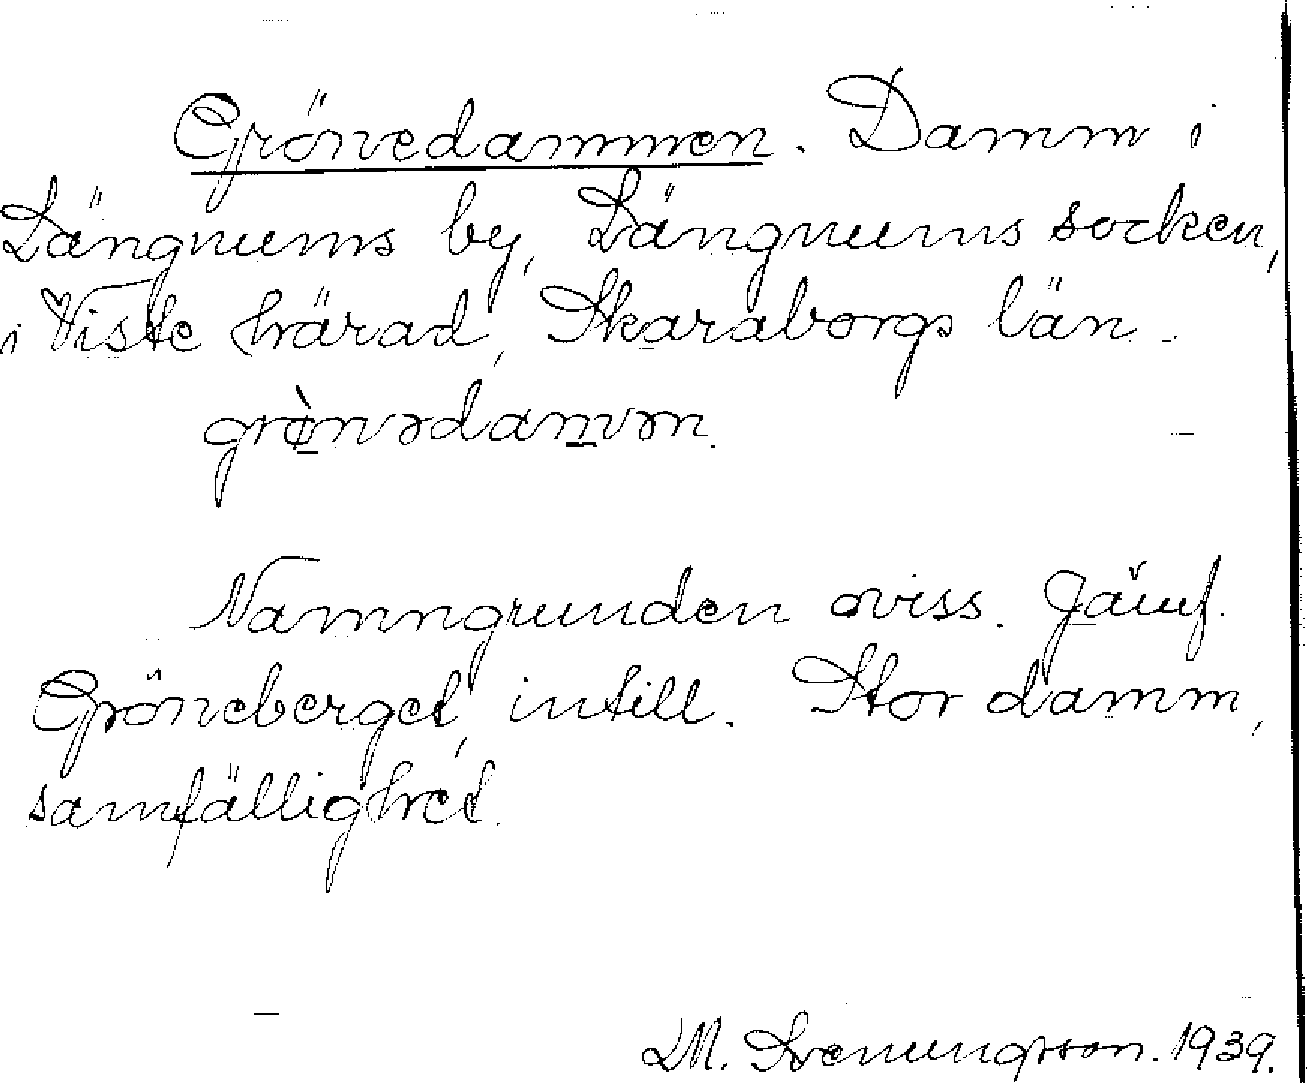 Grönedammen. Damm i
Längnums by, Längnums socken,
i Viste härad, Skaraborgs län.
Namngrunden oviss. Jämf.
Gröneberget, intill. Stor damm,
samfällighet.
M. Svenungsson. 1939.